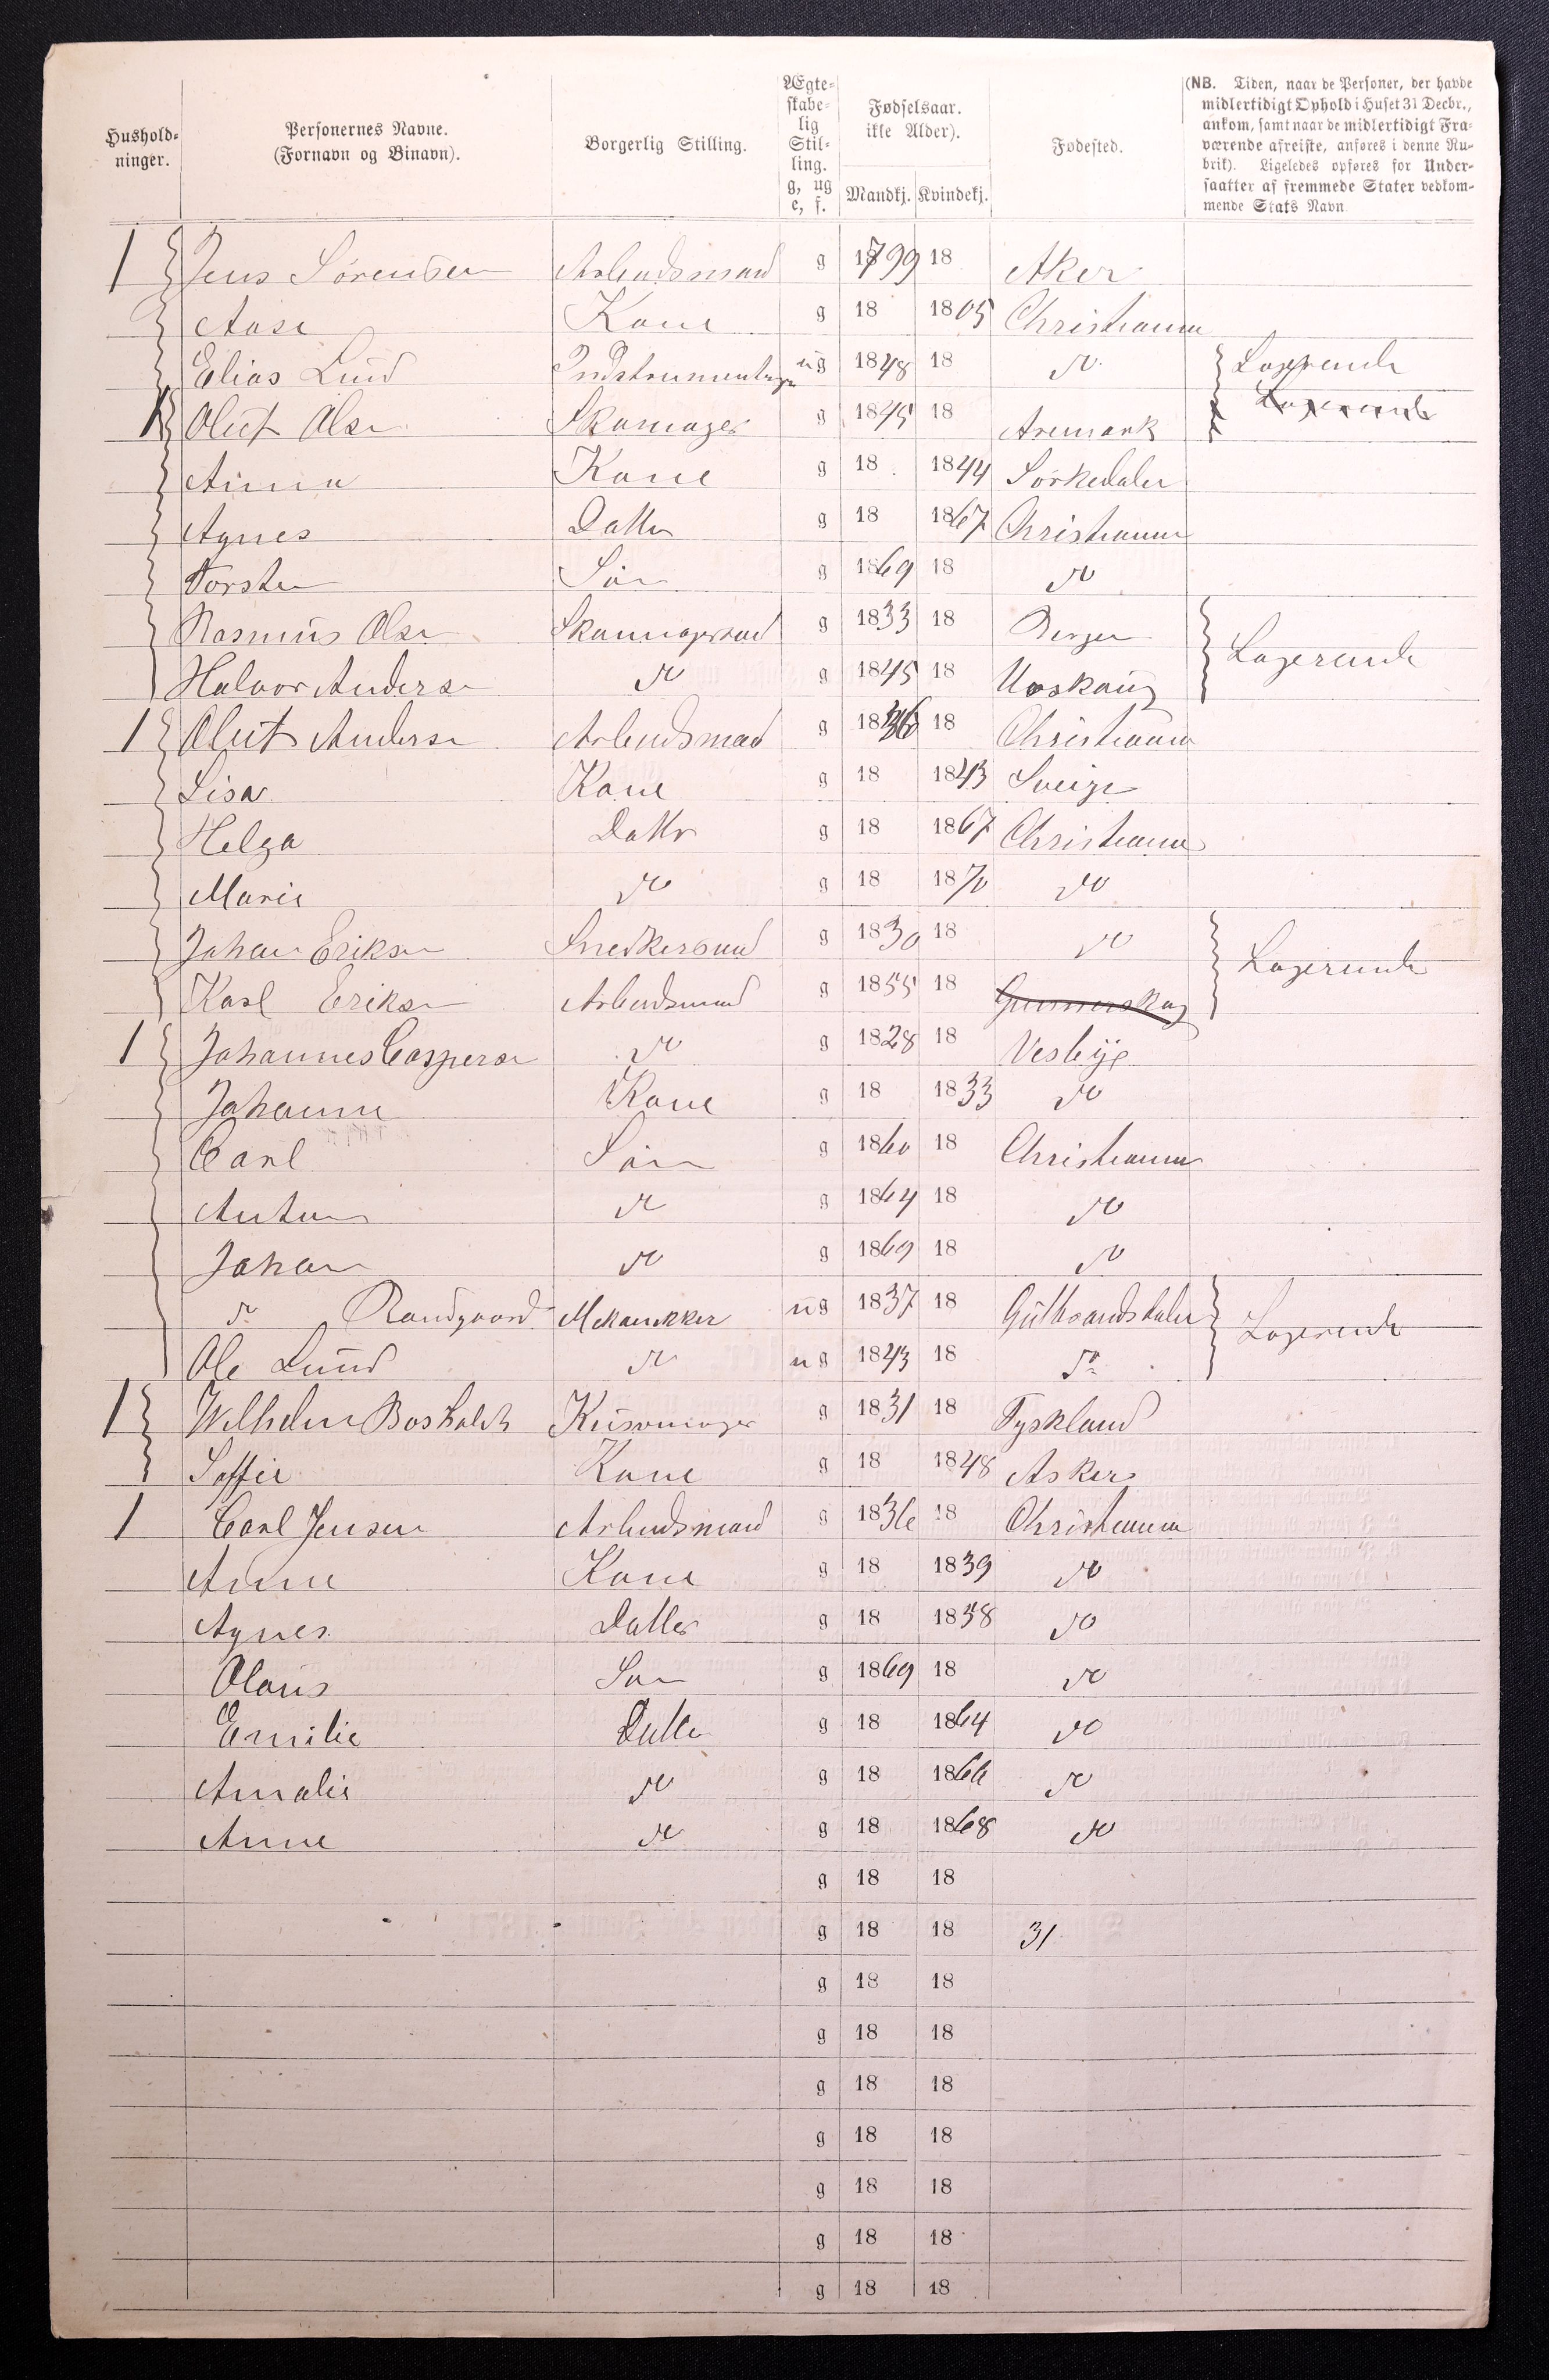 Hushold-ninger. Personernes Navne. (Fornavn og Binavn). Borgerlig Stilling. Ægte-skabe-lig Stil-ling. g, ug e, f. Fødselsaar. ikke Alder). Mandkj. Kvindekj. Fødested. (NB. Tiden, naar de Personer, der havde midlertidigt Ophold i Huset 31 Decbr., ankom, samt naar de midlertidigt Fra-værende afreiste, anføres i denne Ru-brik). Ligeledes opføres for Under-saatter af fremmede Stater vedkom-mende Stats Navn
1 Jens Sørensen Arbeidsmand g 1799 18 Aker
Aase Kone g 18 1805 Christiania
Elias Lund ug 1848 18 do Logerende
1 Oluf Olsen Skomager g 1845 18 Aremark Logerende
Anna Kone g 18 1844 Sørkedalen
Agnes Datter g 18 1867 Christiania
Torsten Søn g 1869 18 do
Rasmus Olsen Skomagersvend g 1833 18 Bergen Logerende
Halvor Andersen do g 1845 18 Uoskoug
1 Oluf Andersen Arbeidsmand g 1836 18 Christiania
Lisa Kone g 18 1843 Sverige
Helga Datter g 18 1867 Christiania
Marie do g 18 1870 do
Johan Eriksen Snedkersvend g 1830 18 do Logerende
Karl Eriksen Arbeidsmand g 1855 18 Gunnerskog
1 Johannes Caspersen do g 1828 18 Vestbye
Johanne Kone g 18 1833 do
Carl Søn g 1860 18 Christiania
Anton do g 1864 18 do
Johan do g 1869 18 do
do Randgaard Mekanikker ug 1837 18 Gulbrandsdalen Logerende
Ole Lund do ug 1843 18 do
1 Wilhelm Bosholdt g 1831 18 Tyskland
Soffie Kone g 18 1848 Asker
1 Carl Jensen Arbeidsmand g 1836 18 Christiania
Anne Kone g 18 1839 do
Agnes Datter g 18 1858 do
Olaus Søn g 1869 18 do
Emilie Datter g 18 1864 do
Amalie do g 18 1866 do
Anne do g 18 1868 do
g 18 18
g 18 18 31
g 18 18
g 18 18
g 18 18
g 18 18
g 18 18
g 18 18
g 18 18